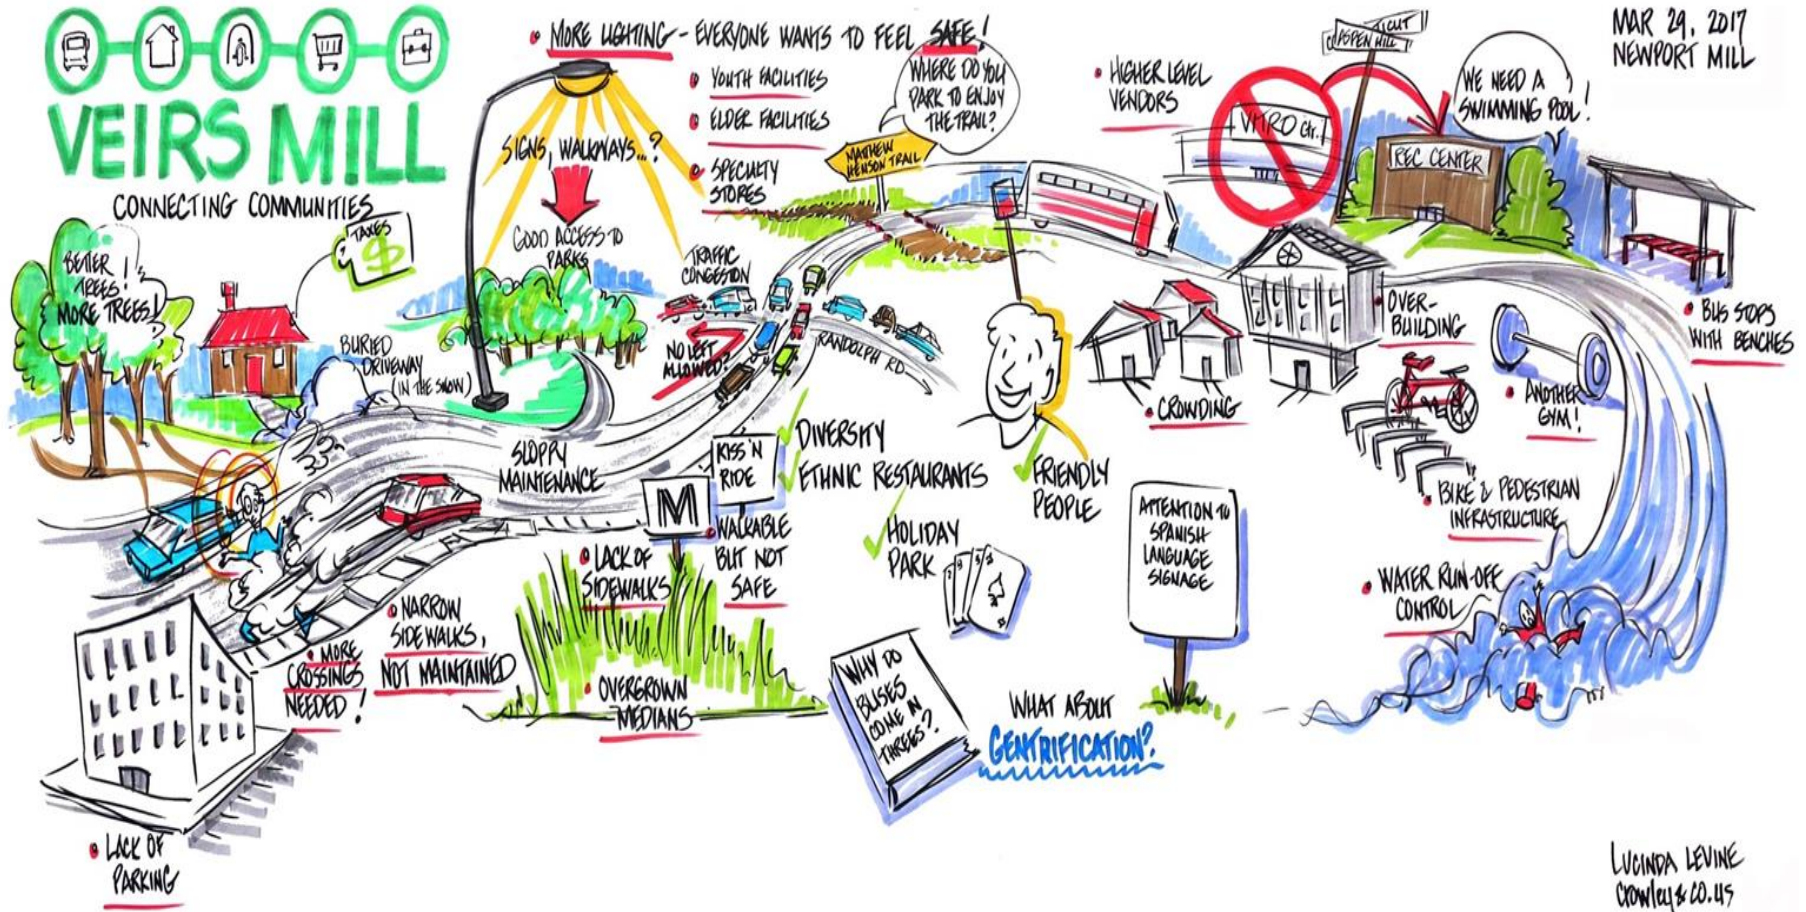 VEIRS MILL
CONNECTING COMMUNITIES
MORE LIGHTING - EVERYONE WANTS TO FEEL SAFE!
YOUTH FACILITIES
ELDER FACILITIES
SPECIALTY
STORES
SIGNS, WALKWAYS...?
GOOD ACCESS TO
PARKS
WHERE DO YOU
PARK TO ENJOY
THE TRAIL?
MATTHEW
HENSON TRAIL
HIGHER LEVEL
VENDORS
VITRO Ctr.
ASPEN HILL
REC CENTER
WE NEED A
SWIMMING POOL!
MAR 29, 2017
NEWPORT MILL
BETTER
TREES!
MORE TREES!
TAXES
$
BURIED
DRIVEWAY
(IN THE SNOW)
TRAFFIC
CONGESTION
NO LEFT
ALLOWED?
RANDOLPH RD
OVER-
BUILDING
CROWDING
BUS STOPS
WITH BENCHES
ANOTHER
GYM!
BIKE & PEDESTRIAN
INFRASTRUCTURE
SLOPPY
MAINTENANCE
KISS 'N
RIDE
M
WALKABLE
BUT NOT
SAFE
DIVERSITY
ETHNIC RESTAURANTS
FRIENDLY
PEOPLE
HOLIDAY
PARK
ATTENTION TO
SPANISH
LANGUAGE
SIGNAGE
WATER RUN-OFF
CONTROL
LACK OF
SIDEWALKS
NARROW
SIDEWALKS,
NOT MAINTAINED
MORE
CROSSINGS
NEEDED!
OVERGROWN
MEDIANS
WHY DO
BUSES
COME IN
THREES?
WHAT ABOUT
GENTRIFICATION?
LACK OF
PARKING
LUCINDA LEVINE
Crowley & CO.US